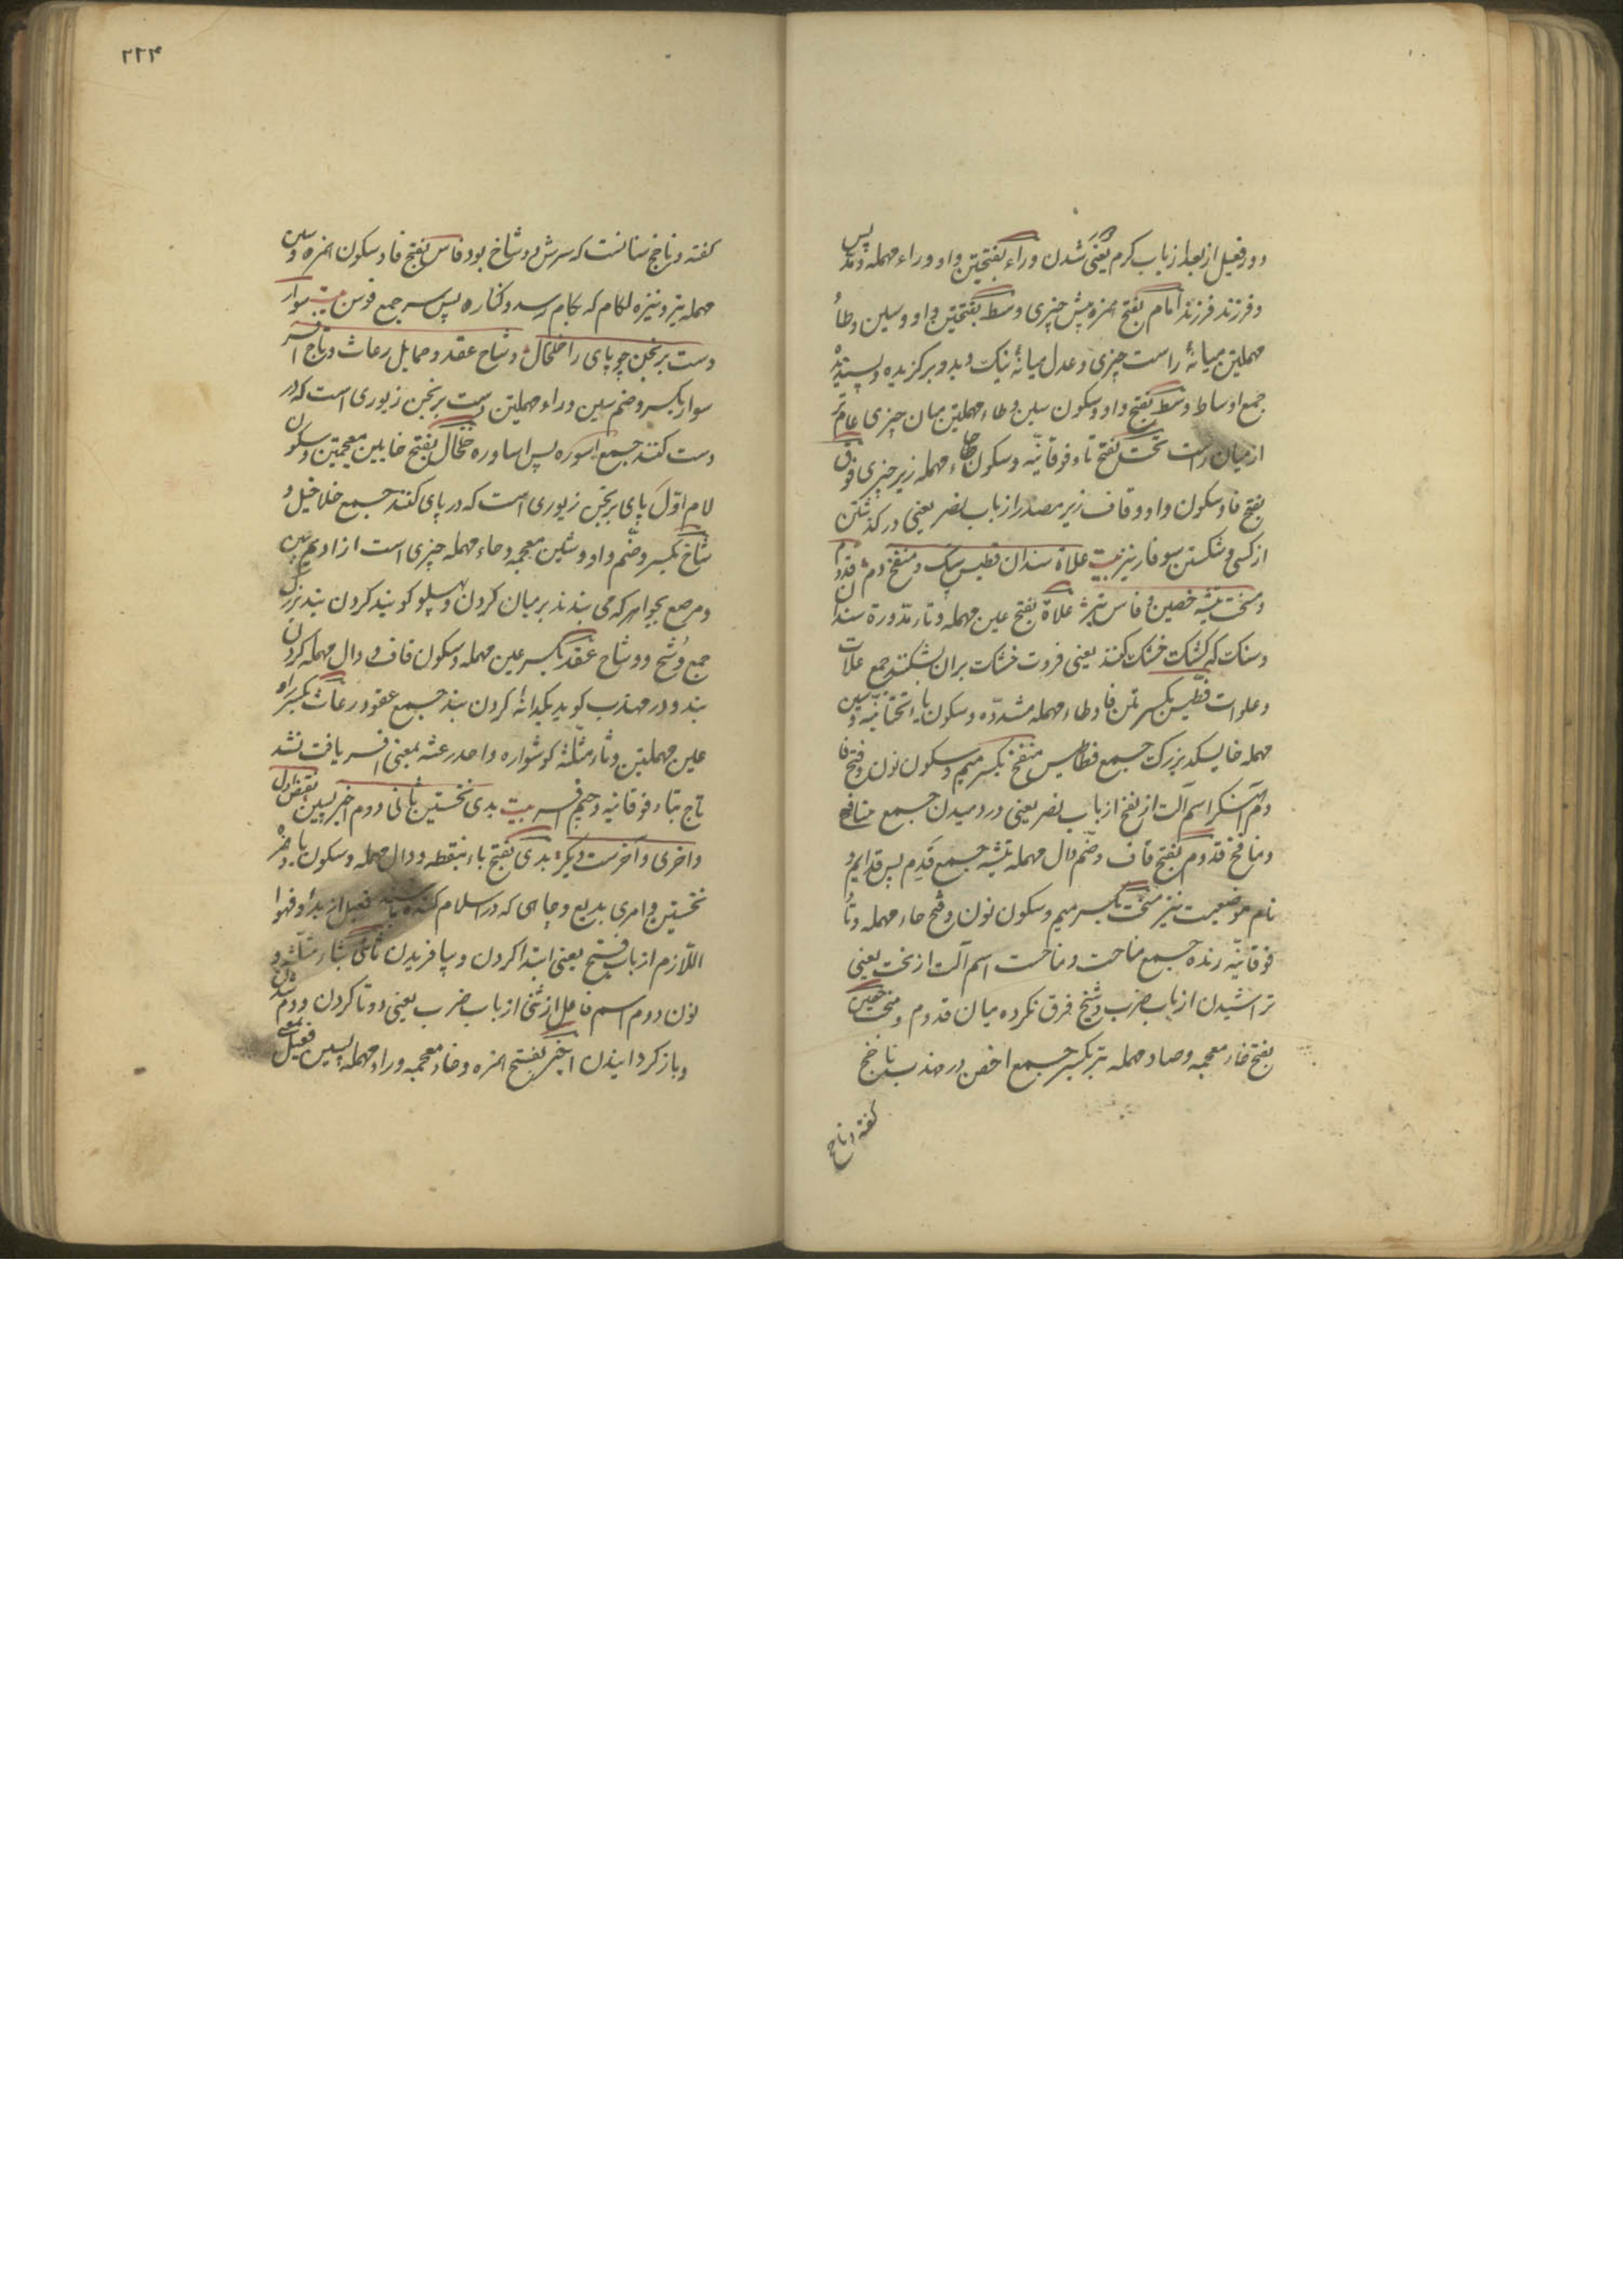 دور فعیل از بعد از باب کرم یعنی دور شدن وراء بفتحتین واو و راء مهمله و مد پس
و فرزند فرزند امام بفتح همزه پیش چیزی وسط بفتحتین واو و سین و طاء
مهملتین میانهٔ راست چیزی و عدل میانهٔ نیک و بد و برگزیده و پسندیده
جمع اوساط وسط بفتح واو و سکون سین و طاء مهملتین میان چیزی عام تر
از میان راست تحت بفتح تاء فوقانیّه و سکون حاء مهمله زیر چیزی فوق
بفتح فا و سکون واو و قاف زبر مصدر از باب نصر یعنی درگذشتن
از کسی و شکستن سوفار تیر بیت علاة سندان فطیس پتک و منفخ دم قدوم
و منحت تیشه خصین و فاس تبر علاة بفتح عین مهمله و تاء مدوره سندان
و سنک که کشک خشک کنند یعنی قروت خشک بران بشکنند جمع علات
و علوات فطیس بکسرتین فا و طاء مهمله مشدّده و سکون یاء تحتانیّه و سین
مهمله خایسک بزرگ جمع فطاطیس منفخ بکسر میم و سکون نون و فتح فا
دم آهنگر اسم آلت از نفخ از باب نصر یعنی در دمیدن جمع منافخ
و منافخ قدوم بفتح قاف و ضم دال مهمله تیشه جمع قدم پس قدایم و
نام موضعیست نیز منحت بکسر میم و سکون نون و فتح حاء مهمله و تاء
فوقانیّه رنده جمع مناحت و مناحت اسم آلت از نحت یعنی
تراشیدن از باب ضرب و شیخ فرق نکرده میان قدوم و منحت خصین
بفتح خاء معجمه و صاد مهمله تبر بکسر جمع اخصن در مهذب ناخخ
کفته و ناخخ
۲۲۴
کفته و ناخخ سنانست که سرش دو شاخ بود فاس بفتح فا و سکون همزه و سین
مهمله تبر و نیزه لکام که بکام رسد و کناره پس سر جمع فوس بیت سوار
دست برنجن چو پای را خلخال وشاح عقد و حمایل رعاث و تاج افسر
سوار بکسر و ضم سین و راء مهملتین دست برنجن زیوری است که در
دست کنند جمع اسوره پس اساوره خلخال بفتح خایین معجمتین و سکون
لام اوّل پای برنجن زیوری است که در پای کنند جمع خلاخیل و
شاح بکسر و ضم واو و شین معجمه و حاء مهمله چیزی است از ادیم پهن
و مرصع بجواهر که می بندند بر میان کردن و پهلو کویند کردن بند بزرگ
جمع وُشح و وشاح عقد بکسر عین مهمله و سکون قاف و دال مهمله کردن
بند و در مهذب کوید یکدانه کردن بند جمع عقود رعاث بکسر راء
عین مهملتین و ثاء مثلّثه کوشواره واحد رعثه بمعنی افسر یافت نشد
تاج بتاء فوقانیه و جیم افسر بیت بدی نخستین ثانی دوم اخیر پسین نقیض اول
واخری و آخرست دیکر بدی بفتح باء بنقطه و دال مهمله و سکون یا و همزه
نخستین و امری بدیع و چاهی که در اسلام کنده باشند فعیل از بدأ و فهوا
اللّازم از باب فتح یعنی ابتدا کردن و بیافریدن ثانی بثاء مثلّثه و
نون دوم اسم فاعل از ثنی از باب ضرب یعنی دوتا کردن و دوم شدن
و باز کردانیدن اخیر بفتح همزه و خاء معجمه و راء مهمله پسین فعیل بمعنی